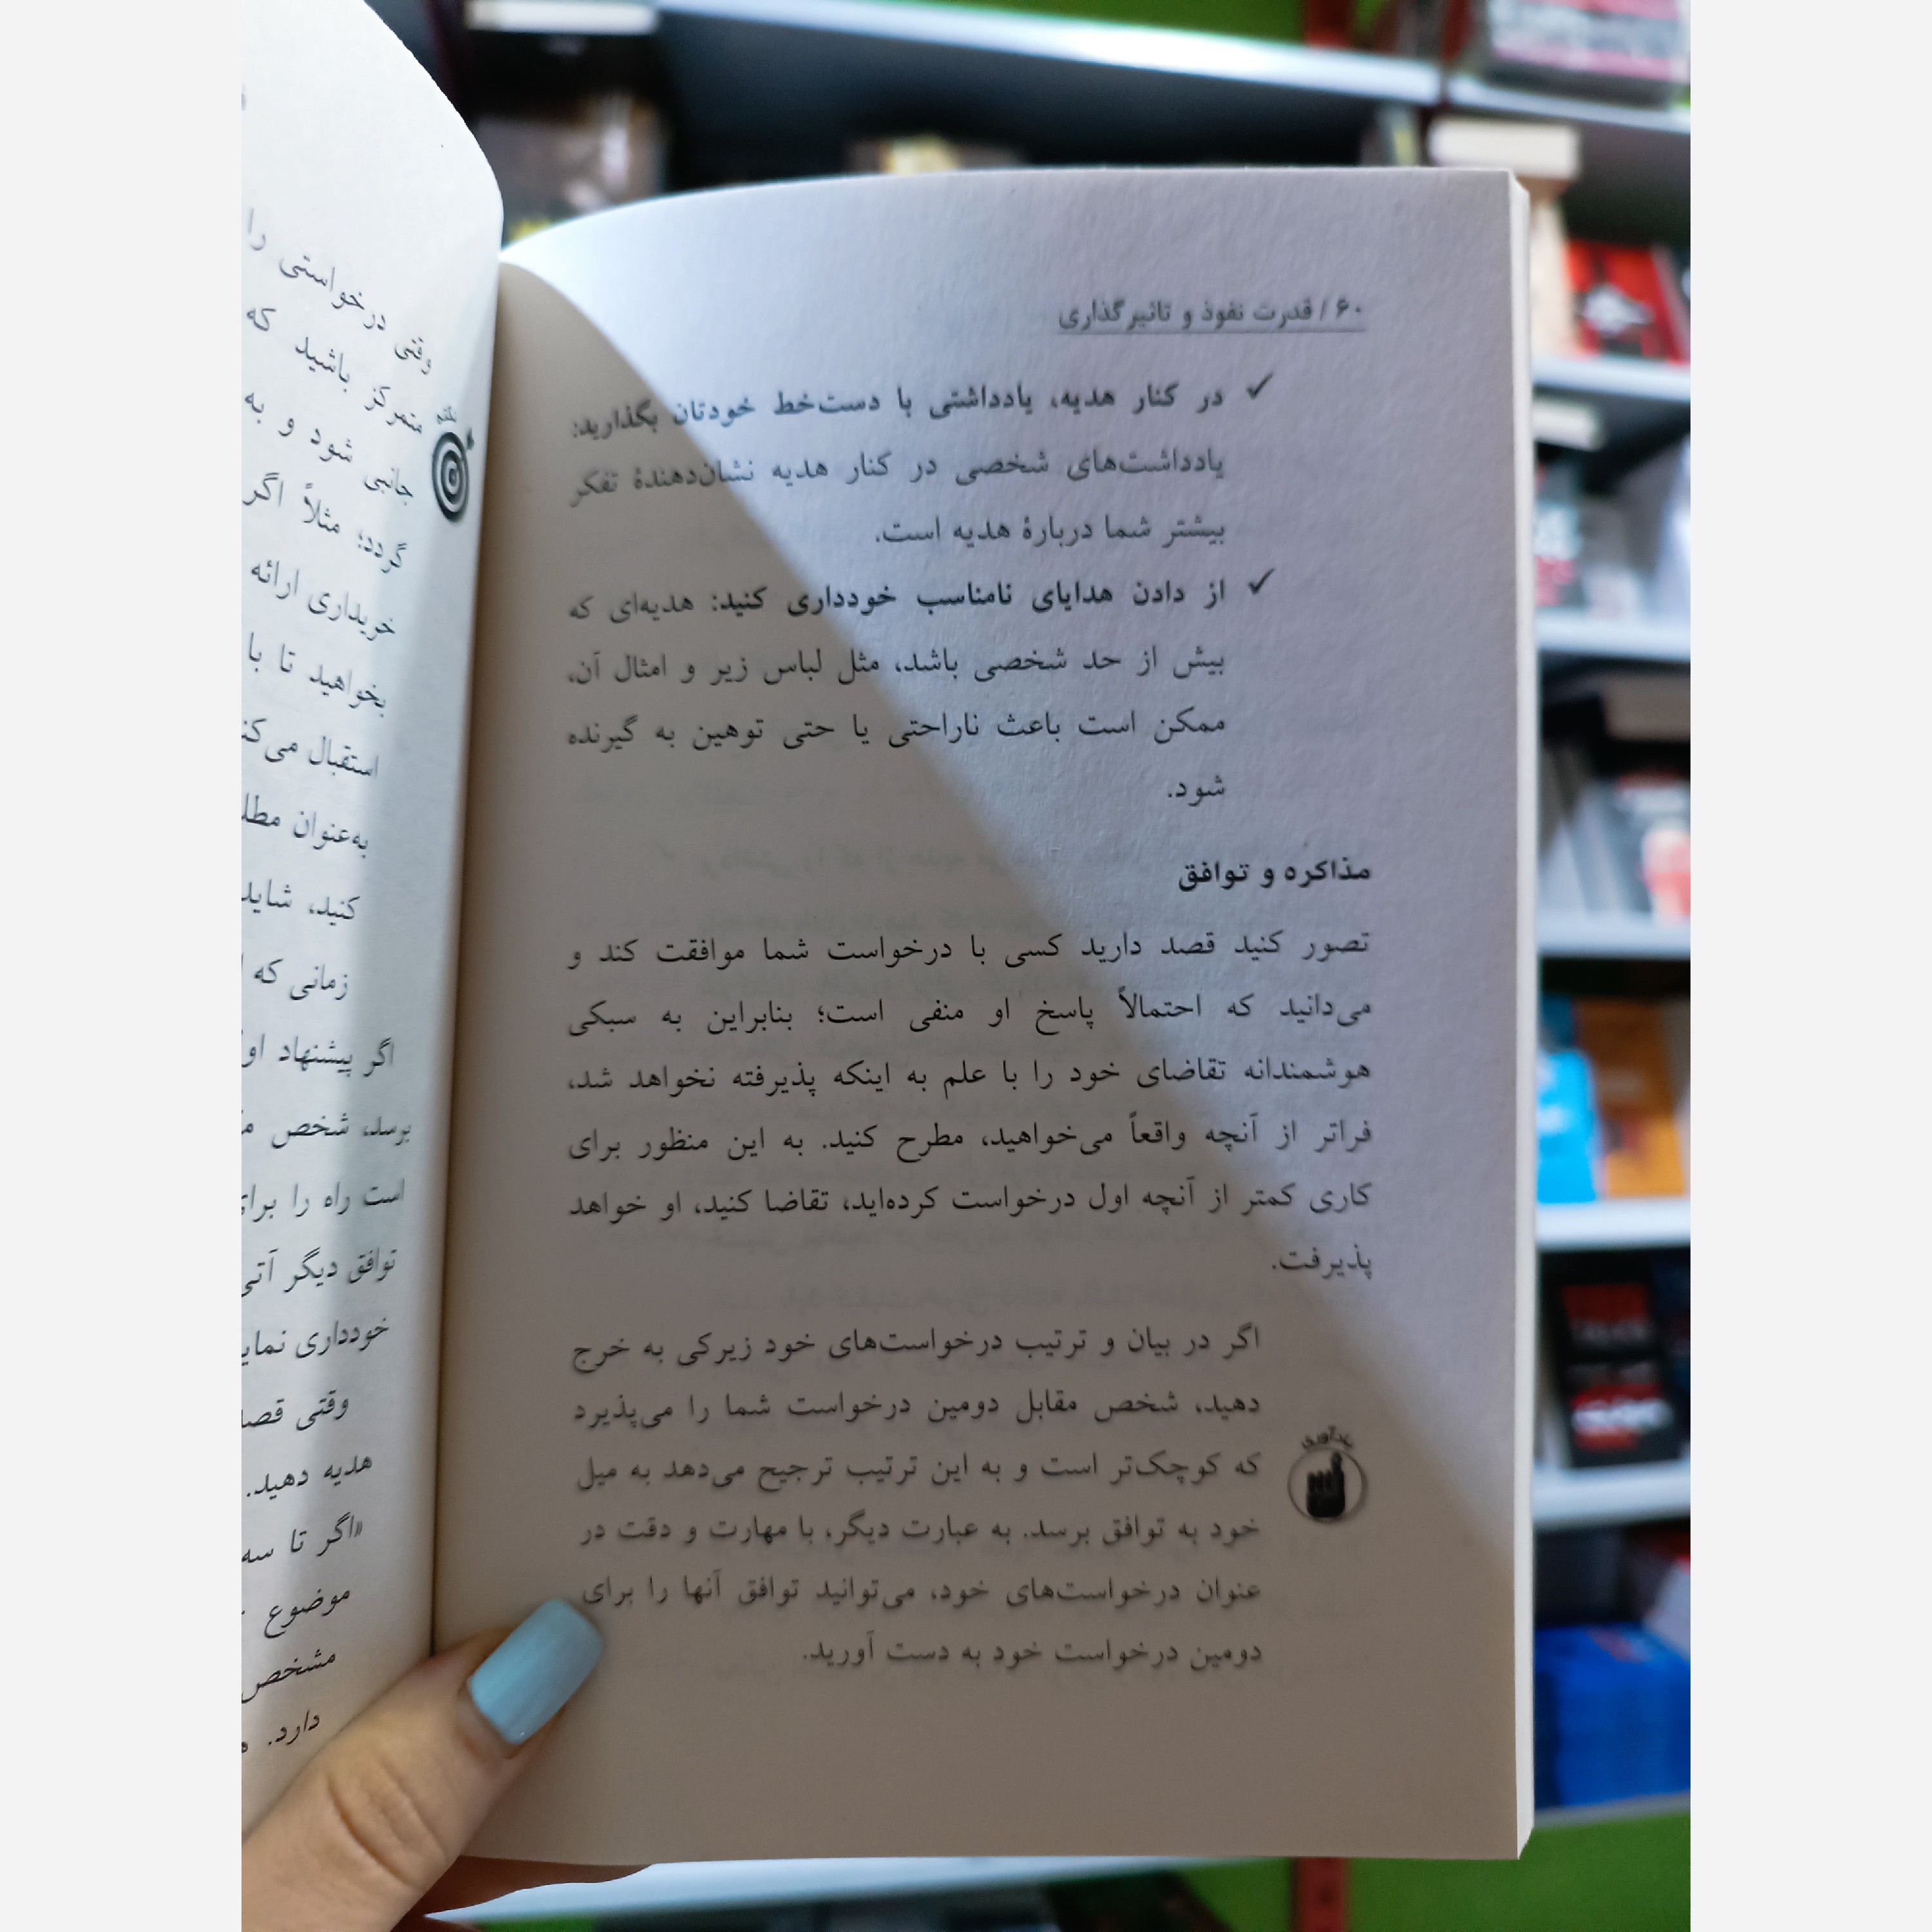 ۶۰ / قدرت نفوذ و تاثیرگذاری
✓ در کنار هدیه، یادداشتی با دست‌خط خودتان بگذارید:
یادداشت‌های شخصی در کنار هدیه نشان‌دهندهٔ تفکر
بیشتر شما دربارهٔ هدیه است.
✓ از دادن هدایای نامناسب خودداری کنید: هدیه‌ای که
بیش از حد شخصی باشد، مثل لباس زیر و امثال آن،
ممکن است باعث ناراحتی یا حتی توهین به گیرنده
شود.
مذاکره و توافق
تصور کنید قصد دارید کسی با درخواست شما موافقت کند و
می‌دانید که احتمالاً پاسخ او منفی است؛ بنابراین به سبکی
هوشمندانه تقاضای خود را با علم به اینکه پذیرفته نخواهد شد،
فراتر از آنچه واقعاً می‌خواهید، مطرح کنید. به این منظور برای
کاری کمتر از آنچه اول درخواست کرده‌اید، تقاضا کنید، او خواهد
پذیرفت.
اگر در بیان و ترتیب درخواست‌های خود زیرکی به خرج
دهید، شخص مقابل دومین درخواست شما را می‌پذیرد
که کوچک‌تر است و به این ترتیب ترجیح می‌دهد به میل
خود به توافق برسد. به عبارت دیگر، با مهارت و دقت در
عنوان درخواست‌های خود، می‌توانید توافق آنها را برای
دومین درخواست خود به دست آورید.
یادآوری
وقتی درخواستی را
متمرکز باشید که
جانبی شود و به
گردد؛ مثلاً اگر
خریداری ارائه
بخواهید تا با
استقبال
به‌عنوان
کنید، شاید
زمانی که
اگر پیشنهاد
برسد، شخص
است راه را
توافق دیگر
خودداری
وقتی
هدیه دهید.
«اگر تا سه
موضوع
مشخص
دارد.